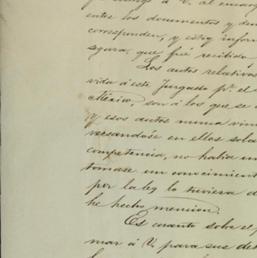 á V. al encar
entre los documentos y de
corresponden, y estoy infor
segura, que fué recibido
Los autos relativos
vida á este Juzgado pr. el
México, son á los que se
y esos autos nunca vin
versandose en ellos sola
competencia, no habia un
tomase un conocimient
por la ley la tuviera d
he hecho mencion.
Es cuanto sobre el p
mar á V. para sus de